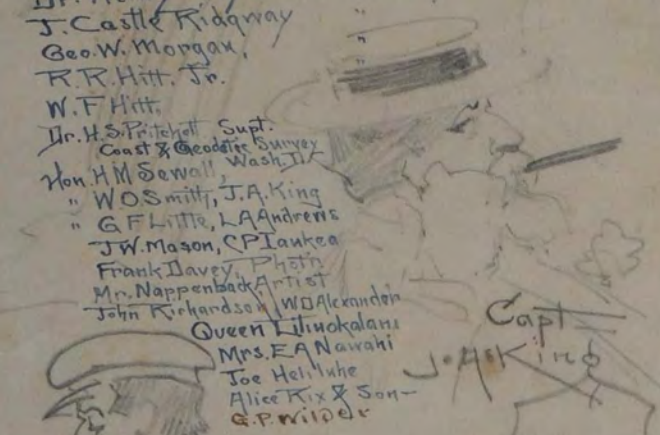 J. Castle Ridgway
Geo. W. Morgan,
R. R. Hitt, Jr.
W. F Hitt,
Dr. H. S. Pritchett Supt.
Coast & Geodetic Survey
Wash. D.C.
Hon. H M Sewall,
" W O. Smith, J. A. King
" G F Little, L A Andrews
J W. Mason, C P Iaukea
Frank Davey, Phot'r
Mr. Nappenback Artist
John Richardson W D Alexander
Queen Liliuokalani
Mrs. E A Nawahi
Joe Heleluhe
Alice Rix & Son
G. P. Wilder
Capt
J. A. King